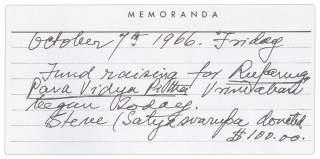 MEMORANDA
October 7th 1966. Friday
Fund raising for Ruparuga
Para Vidya Pitha Vrindaban
began today.
Steve (Satyasvarupa donated
$100.00.